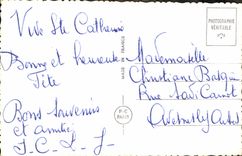 Vive Ste Catherine
Bonne et heureuse
Fête
Bons Souvenirs
et amitiés
J. C. L. J.
MADE IN FRANCE
PHOTOGRAPHIE
VÉRITABLE
Mademoiselle
Christiane
Rue Sadi Carnot